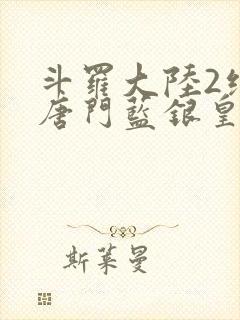 斗羅大陸2絕
唐門藍銀皇
斯萊曼